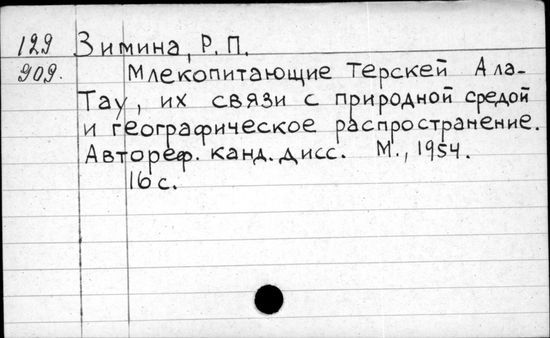 129 Зимина, Р. П.
909. Млекопитающие Терскей Ала-
Тау, их связи с природной средой
и географическое распространение.
Автореф. канд. дисс. М., 1954.
16 с.